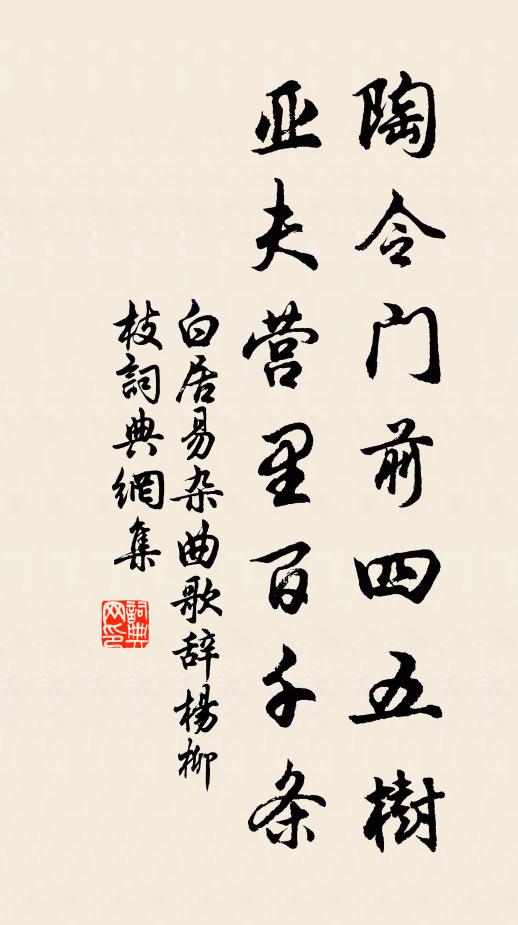 陶令门前四五樹
亚夫营里百千条
白居易杂曲歌辞楊柳
枝詞典網集
詞典网印